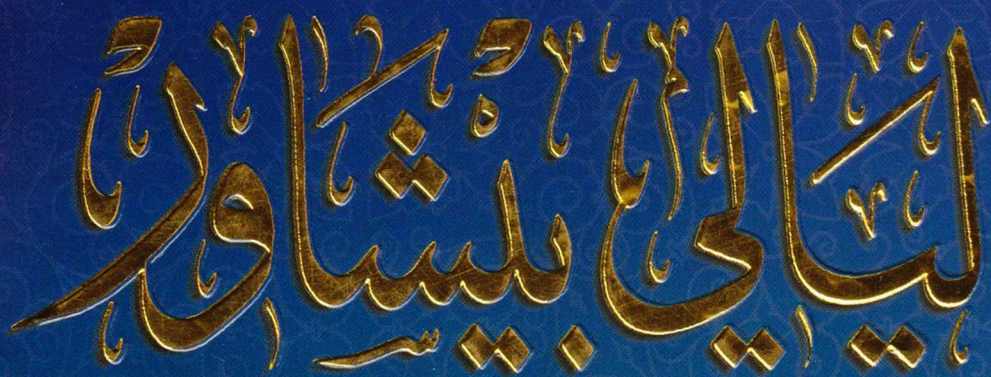 ليالي بيشاور